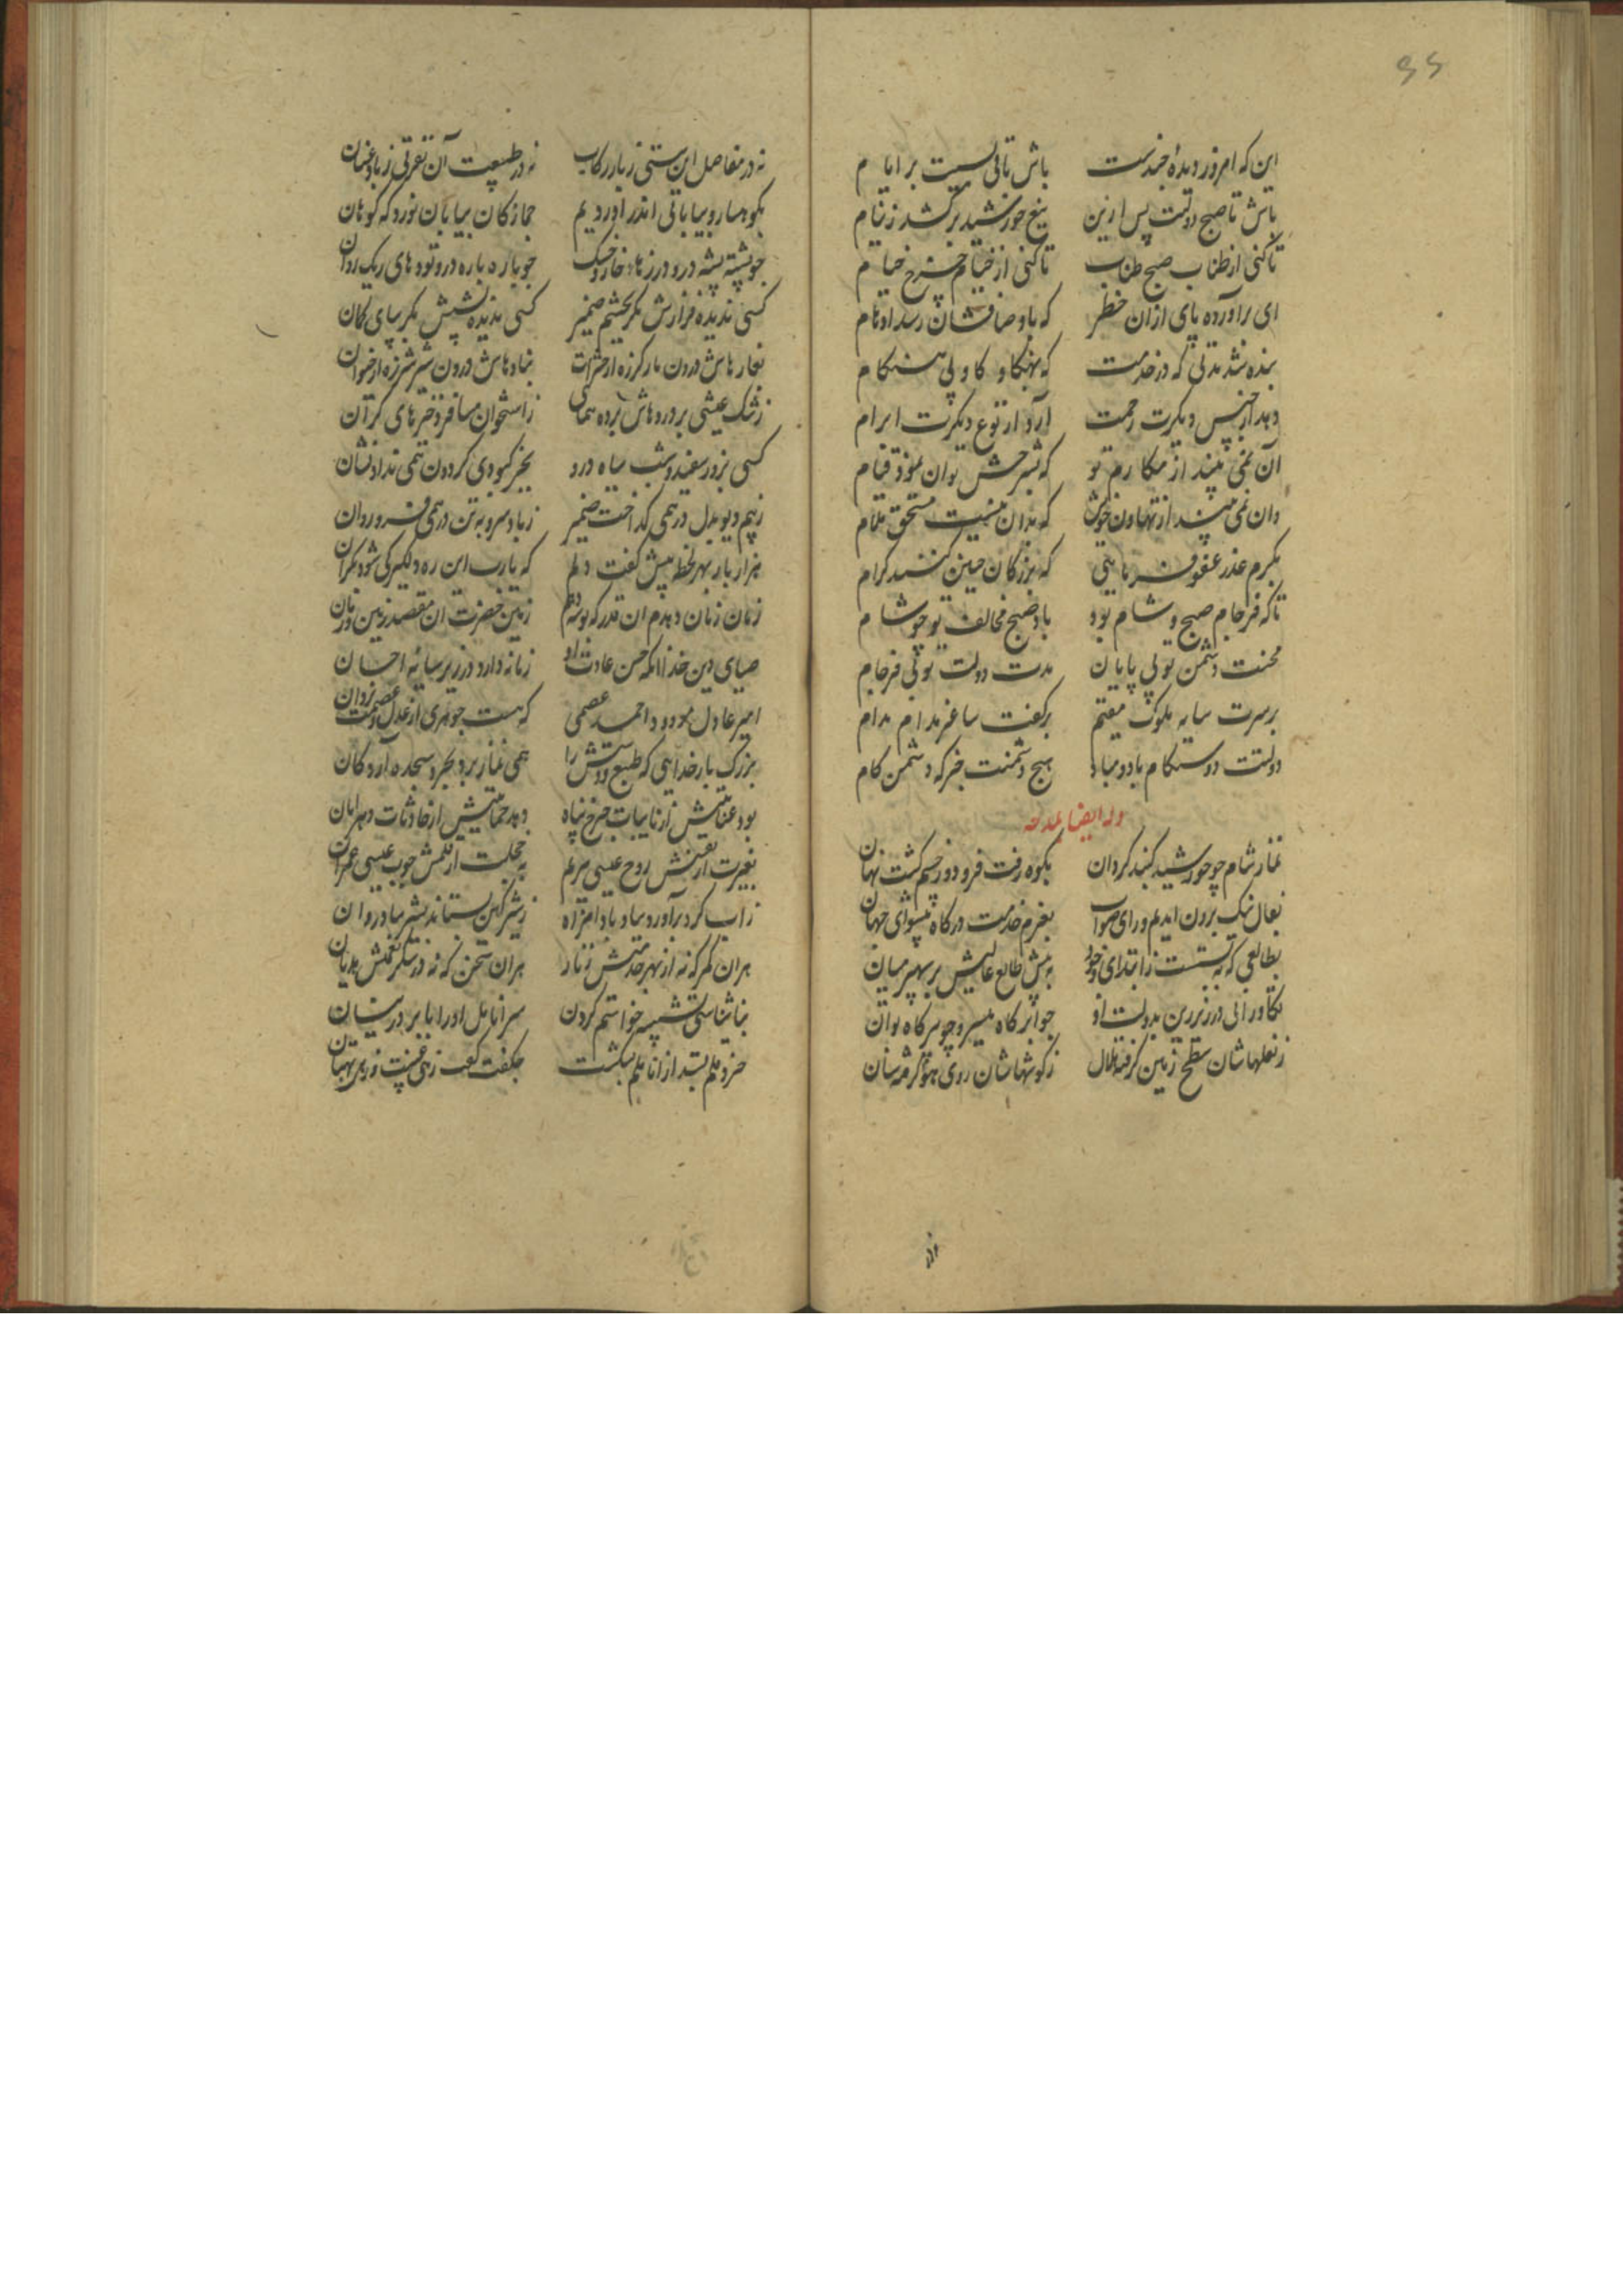 ۶۶
این که امروز دیدهٔ چندست باش تا فی لست بر ایام
باش تا صبح دولت پس ازین تیغ خورشید برکشد ز نیام
تا کنی از طناب صبح طناب تا کنی از خیام چرخ خیام
ای برآورده پای ازان خطر که باوصافشان رسد اوهام
بنده شد مدتی که در خدمت که بهنکام و کاه بی هنکام
دهد از جنس دیکرت رحمت آرد از نوع دیکرت ابرام
آن نمی بیند از مکارم تو که بشرحش توان نمود قیام
وان نمی بیند از تهاون خویش که بدان نیست مستحق ملام
بکرم عذر عفو فرمایی که بزرکان چنین کنند کرام
تا که فرجام صبح و شام بود باد صبح مخالف تو چو شام
محنت دشمن تو بی پایان مدت دولت تو بی فرجام
بر سرت سایه ملوک مقیم بر کفت ساغر مدام مدام
دولتت دوستکام باد و مباد هیچ دشمنت جز که دشمن کام
وله ایضا یمدحه
نماز شام چو خورشید کنبد کردان بکوه رفت فرو وز چشم کشت نهان
بفال نیک برون آیدم ورای صواب بعزم خدمت درکاه پیشوای جهان
بطالعی که نشست ز ابتدای وجود به پیش طالع عالیش بر سپهر میان
تکاورانی در زیر زین بدولت او چو ابر کاه مسیر و چو سر کاه توان
ز نعلهاشان سطح زمین کرفته هلال ز کوشهاشان روی هوا کرفته سنان
نه در مفاصل این سستی ز بار رکاب نه در طبیعت آن نفرتی ز باد عنان
بکوهسار و بیابانی اندر آوردیم جمازکان بیابان نورد که کوهان
چو پشته پشته درو درزها خار و خسک چو باره باره درو تودهای ریک روان
کسی ندیده فرازش مکر بچشم ضمیر کسی ندیده نشیبش مکر بپای کمان
بغارهاش درون مار کرزه از حشرات نهادهاش درون شیر شرزه از اخوان
ز تنک عیشی بر دردهاش برده همای ز استخوان مسافر ذخیرهای کران
کسی بروز سفید و شب سیاه درو بجز کبودی کردون همی نداد نشان
ز بیم دیو بدل در همی کداخت ضمیر ز باد سرو به تن در همی فسرد روان
هزار بار بهر لحظه بیش کفت دلم که یارب این ره دلکیر کی شود بکران
زمان زمان دهدم آن قدر که بوسه دهم زمین حضرت آن مقصد زمین و زمان
ضیای دین خدا آنکه حسن عادت او زمانه دارد در زیر سایهٔ احسان
امیر عادل مودود احمد عصمی که هست جوهری از عدل و عصمت یزدان
بزرک بار خدایی که طبع و دستش را همی نماز برد بحر و سجده آرد کان
بود عنایتش از نایبات چرخ پناه دهد حمایتش از حادثات دهر امان
بغیرت از نفسش روح عیسی مریم بخجلت از قلمش چوب عیسی عمران
ز آب کرد برآورد سا و باد افتزاه ز شیر کین بستاند بشیر شادروان
هران کمر که نه از بهر خدمتش زنار هران سخن که نه در شکر نعمتش هذیان
بناشناسی تشبیه خواستم کردن سر انامل او را بابر در نیسان
خرد قلم بستد از اناملم بشکست چه کفت کفت زهی غیبت و زهی بهتان